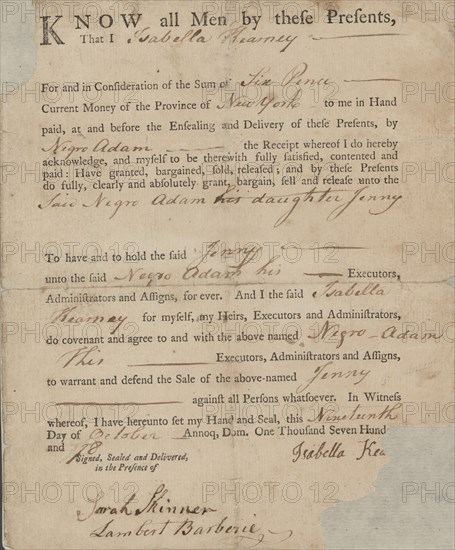 KNOW all Men by these Presents,
That I Isabella Kearney
For and in Consideration of the Sum of Six Pence
Current Money of the Province of New York to me in Hand
paid, at and before the Ensealing and Delivery of these Presents, by
Negro Adam the Receipt whereof I do hereby
acknowledge, and myself to be therewith fully satisfied, contented and
paid: Have granted, bargained, sold, released; and by these Presents
do fully, clearly and absolutely grant, bargain, sell and release unto the
Said Negro Adam his daughter Jenny
To have and to hold the said Jenny
unto the said Negro Adam his Executors,
Administrators and Assigns, for ever. And I the said Isabella
Kearney for myself, my Heirs, Executors and Administrators,
do covenant and agree to and with the above named Negro Adam
His Executors, Administrators and Assigns,
to warrant and defend the Sale of the above-named Jenny
against all Persons whatsoever. In Witness
whereof, I have hereunto set my Hand and Seal, this Nineteenth
Day of October Annoq, Dom. One Thousand Seven Hund
and
Signed, Sealed and Delivered, Isabella Kea
in the Presence of
Sarah Skinner
Lambert Barberie
PHOTO12